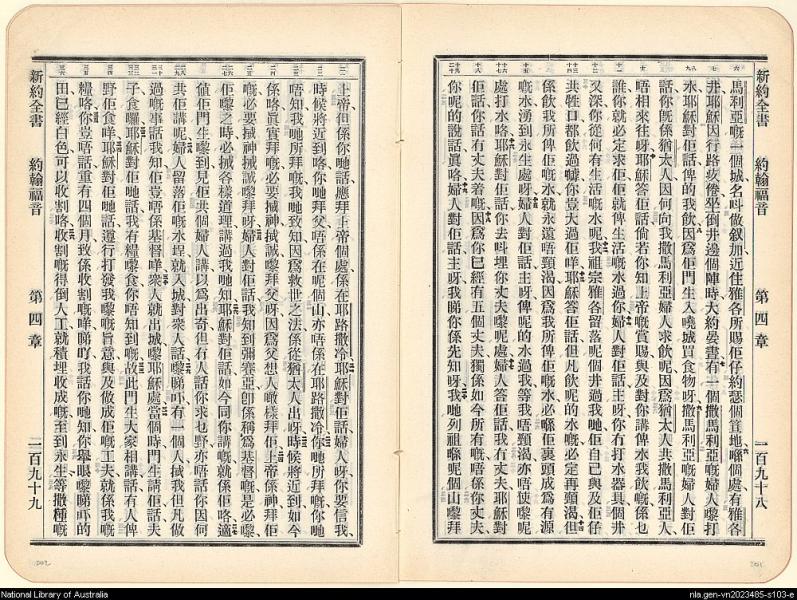 新約全書 約翰福音 第四章 二百九十八
馬利亞嘅一個城名呌做叙加近住雅各所賜佢仔約瑟個笪地嘅個處有雅各
井耶穌因行路疲倦坐倒井邊個陣時大約晏晝有一個撒馬利亞嘅婦人嚟打
水耶穌對佢話俾的我飲因爲佢門生入嘵城買食物呀撒馬利亞嘅婦人對佢
話你旣係猶太人因何向我撒馬利亞婦人求飲呢因爲猶太人共撒馬利亞人
唔相來往呀耶穌答佢話倘若你知上帝嘅賞賜與及對你講俾水我飲嘅係乜
誰你就必定求佢佢就俾生活嘅水過你婦人對佢話主呀你冇打水器具個井
又深你從何有生活嘅水呢我祖宗雅各留落呢個井過我哋佢自己與及佢仔
共牲口都飲過嚹你豈大過佢咩耶穌答佢話但凡飲呢的水嘅必定再頸渴但
係飲我所俾佢嘅水就永遠唔頸渴因爲我所俾佢嘅水必喺佢裏頭成爲有源
嘅水湧到永生處呀婦人對佢話主呀俾呢的水過我等我唔頸渴亦唔使嚟呢
處打水咯耶穌對佢話你去呌埋你丈夫嚟呢處婦人答佢話我冇丈夫耶穌對
佢話你話冇丈夫着嘅因爲你已經有五個丈夫獨係如今所有嘅唔係你丈夫
你呢的說話眞咯婦人對佢話主呀我睇你係先知呀我哋列祖喺呢個山嚟拜
上帝但係你哋話應拜上帝個處係在耶路撒冷耶穌對佢話婦人呀你要信我
時候將近到咯你哋拜父唔係在呢個山亦唔係在耶路撒冷你哋所拜嘅你哋
唔知我哋所拜嘅我哋致知因爲救世之法係從猶太人出呀時候將近到如今
係咯眞實拜嘅必要㨢神㨢誠嚟拜父呀因爲父想人噉樣拜佢上帝係神拜佢
嘅必要㨢神㨢誠嚟拜呀婦人對佢話我知到彌賽亞卽係稱爲基督嘅是必嚟
佢嚟之時必㨢各樣道理講過我哋知耶穌對佢話如今同你講嘅就係佢咯適
値佢門生嚟到見佢共個婦人講以爲出奇但冇人話你求乜野亦唔話你因何
共佢講呢婦人留落佢嘅水埕就入城對衆人話嚟睇吓有一個人㨢我但凡做
過嘅事話我知佢豈唔係基督咩衆人就出城嚟耶穌處當個時門生請佢話夫
子食囉耶穌對佢哋話我有糧嚟食你唔知到嘅故此門生大家相講話有人俾
野佢食咩耶穌對佢哋話遵行打發我嚟嘅旨意與及做成佢嘅工夫就係我嘅
糧咯你豈唔話重有四個月致係收割嘅咩睇吓我話你哋知你舉眼嚟睇吓的
田已經白色可以收割咯收割嘅得倒人工就積埋收成嘅至到永生等撒種嘅
新約全書 約翰福音 第四章 二百九十九
National Library of Australia
nla.gen-vn2023485-s103-e